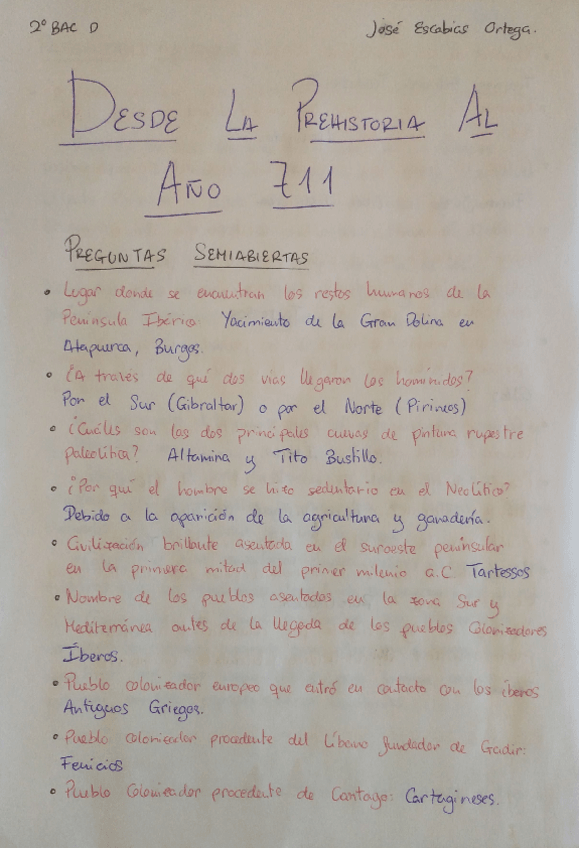 2º BAC D
José Escabias Ortega.
DESDE LA PREHISTORIA AL
AÑO 711
PREGUNTAS SEMIABIERTAS
• Lugar donde se encuentran los restos humanos de la
Península Ibérica. Yacimiento de la Gran Dolina en
Atapuerca, Burgos.
• ¿A traves de qué dos vías llegaron los homínidos?
Por el Sur (Gibraltar) o por el Norte (Pirineos)
• ¿Cuáles son las dos principales cuevas de pintura rupestre
paleolítica? Altamina y Tito Bustillo.
• ¿Por qué el hombre se hizo sedentario en el Neolítico?
Debido a la aparición de la agricultura y ganadería.
• Civilización brillante asentada en el suroeste peninsular
en la primera mitad del primer milenio a.C Tartessos
• Nombre de los pueblos asentados en la zona Sur y
Mediterránea antes de la llegada de los pueblos Colonizadores
Íberos.
• Pueblo colonizador europeo que entró en contacto con los íberos
Antiguos Griegos.
• Pueblo colonizador procedente del Líbano fundador de Gadir:
Fenicios
• Pueblo Colonizador procedente de Cantago: Cartagineses.